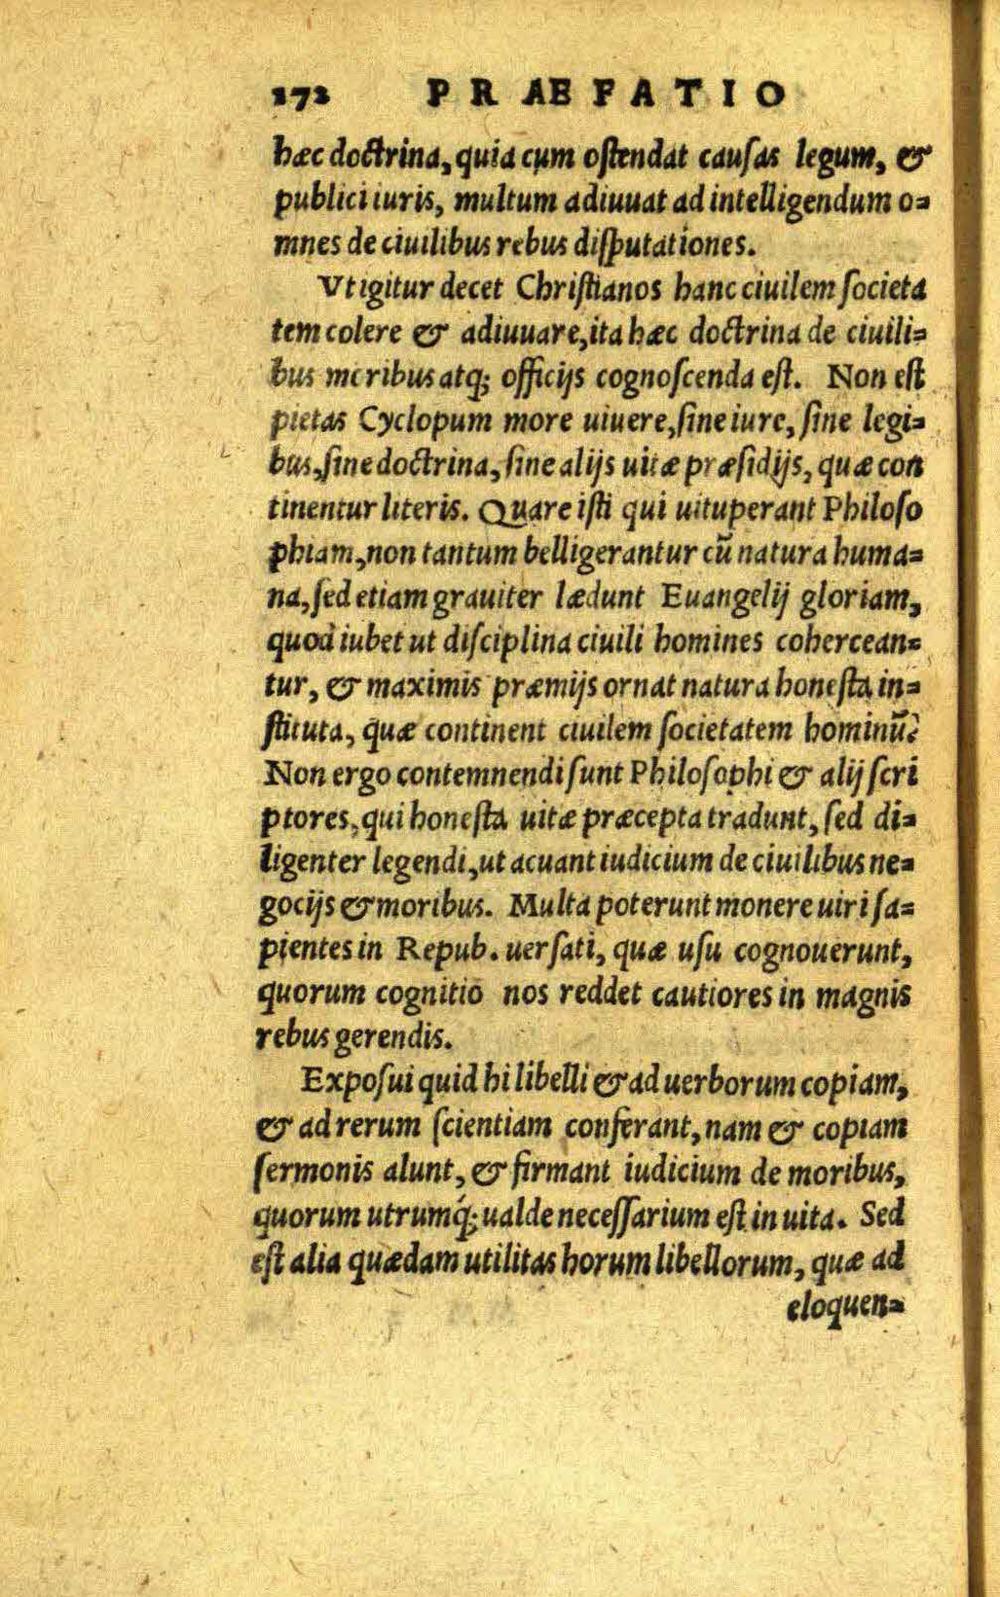 172 PRAEFATIO
hæc doctrina, quia cum ostendat causas legum, &
publici iuris, multum adiuuat ad intelligendum o=
mnes de ciuilibus rebus disputationes.
Vt igitur decet Christianos hanc ciuilem societa
tem colere & adiuuare, ita hæc doctrina de ciuili=
bus moribus atq; officijs cognoscenda est. Non est
pietas Cyclopum more uiuere, sine iure, sine legi=
bus, sine doctrina, sine alijs uitæ præsidijs, quæ con
tinentur literis. Quare isti qui uituperant Philoso
phiam, non tantum belligerantur cũ natura huma=
na, sed etiam grauiter lædunt Euangelij gloriam,
quod iubet ut disciplina ciuili homines cohercean=
tur, & maximis præmijs ornat natura honesta in=
stituta, quæ continent ciuilem societatem hominũ?
Non ergo contemnendi sunt Philosophi & alij scri
ptores, qui honesta uitæ præcepta tradunt, sed di=
ligenter legendi, ut acuant iudicium de ciuilibus ne=
gocijs & moribus. Multa poterunt monere uiri sa=
pientes in Repub. uersati, quæ usu cognouerunt,
quorum cognitio nos reddet cautiores in magnis
rebus gerendis.
Exposui quid hi libelli & ad uerborum copiam,
& ad rerum scientiam conferant, nam & copiam
sermonis alunt, & firmant iudicium de moribus,
quorum utrumq́; ualde necessarium est in uita. Sed
est alia quædam utilitas horum libellorum, quæ ad
eloquen=